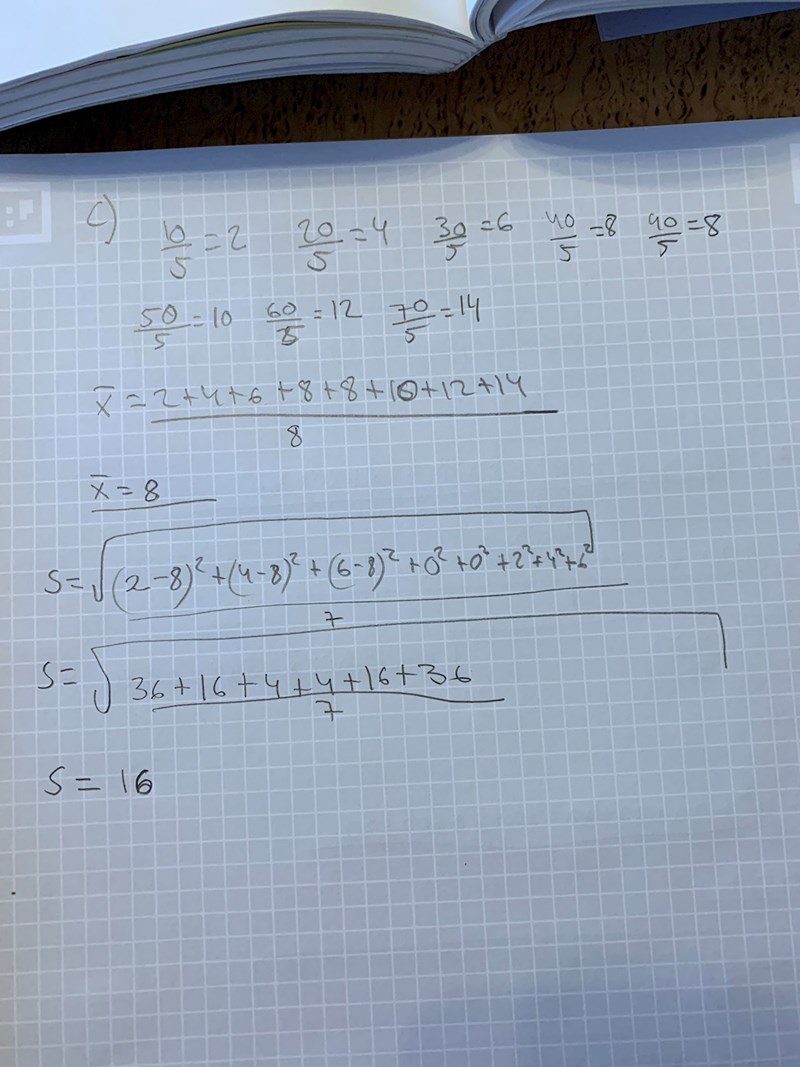 c) 10/5 = 2 20/5 = 4 30/5 = 6 40/5 = 8 40/5 = 8
50/5 = 10 60/5 = 12 70/5 = 14
x̄ = (2+4+6+8+8+10+12+14)/8
x̄ = 8
S = √((2-8)² + (4-8)² + (6-8)² + 0² + 0² + 2² + 4² + 6²)/7
S = √(36+16+4+4+16+36)/7
S = 16